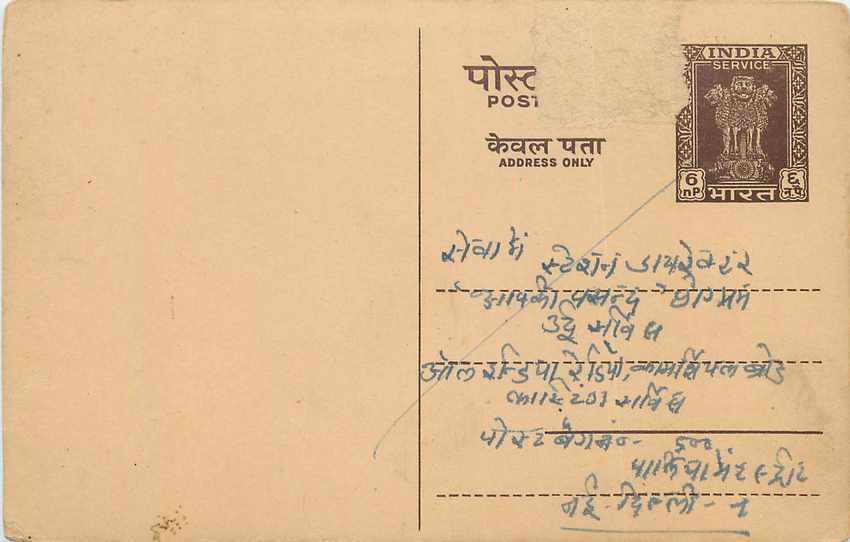 INDIA
SERVICE
पोस्ट
POST
केवल पता
ADDRESS ONLY
6 nP भारत ६ न.पै.
सेवा में
स्टेशन डायरेक्टर
"आपकी पसन्द" प्रोग्राम
उर्दू सर्विस
ऑल इन्डिया रेडियो, कामर्शियल ब्रोड
कास्टिंग सर्विस
पोस्ट बैग नं०- ५००
पार्लियामेंट स्ट्रीट
नई-दिल्ली-१